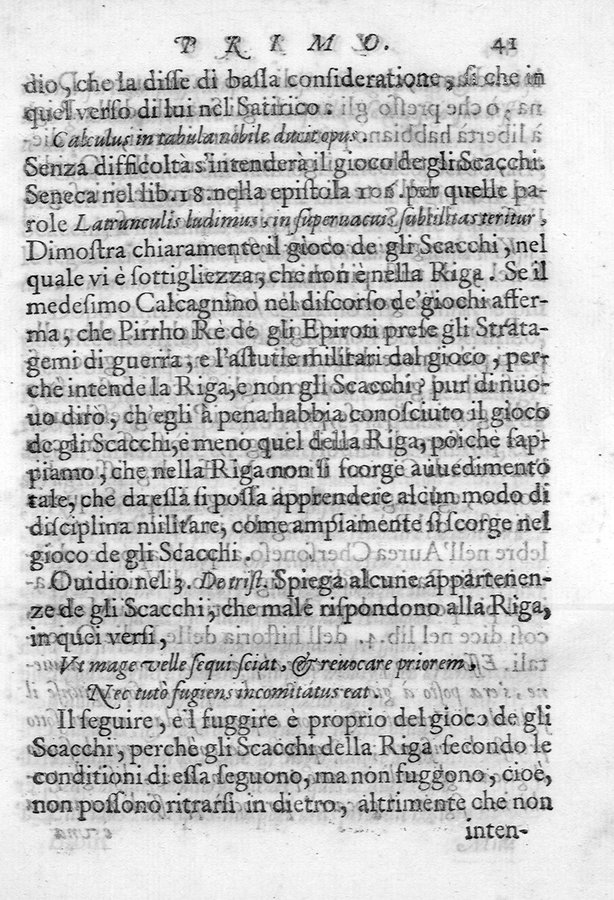 PRIMO. 41
dio, che la disse di bassa consideratione, si che in
quel verso di lui nel Satirico.
Calculus in tabula nobile ducit opus.
Senza difficoltà s'intenderà il gioco de gli Scacchi.
Seneca nel lib. 18. nella epistola 106. per quelle pa-
role Latrunculis ludimus, in superuacuis subtilitas teritur,
Dimostra chiaramente il gioco de gli Scacchi, nel
quale vi è sottigliezza, che non è nella Riga. Se il
medesimo Calcagnino nel discorso de' giochi affer-
ma, che Pirrho Rè de gli Epiroti prese gli Strata-
gemi di guerra, e l'astutie militari dal gioco, per-
chè intende la Riga, e non gli Scacchi? pur di nuo-
uo dirò, ch'egli à pena habbia conosciuto il gioco
de gli Scacchi, e meno quel della Riga, poiche sap-
piamo, che nella Riga non si scorge auuedimento
tale, che da essa si possa apprendere alcun modo di
disciplina militare, come ampiamente si scorge nel
gioco de gli Scacchi.
Ouidio nel 3. De trist. Spiega alcune appartenen-
ze de gli Scacchi, che male rispondono alla Riga,
in quei versi,
Vt mage velle sequi sciat, & reuocare priorem,
Nec tutò fugiens incomitatus eat.
Il seguire, e 'l fuggire e proprio del gioco de gli
Scacchi, perchè gli Scacchi della Riga secondo le
conditioni di essa seguono, ma non fuggono, cioè,
non possono ritrarsi in dietro, altrimente che non
inten-